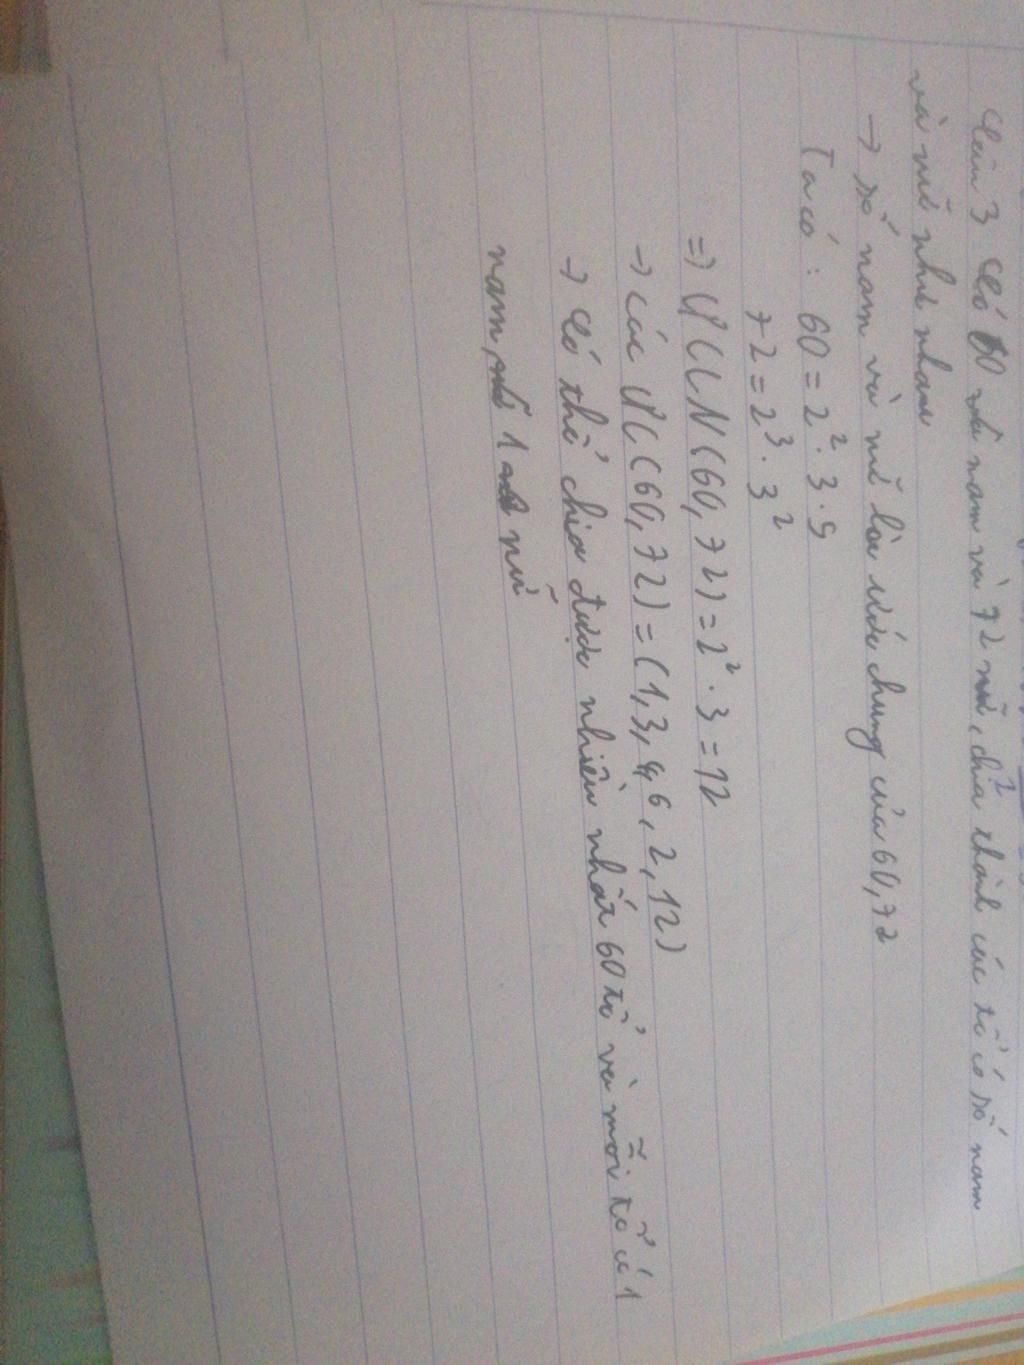 Câu 3 Có 60 nam và 72 nữ, chia thành các tổ có số nam
và nữ như nhau
→ số nam và nữ là ước chung của 60, 72
Ta có : 60 = 2² . 3 . 5
72 = 2³ . 3²
=> ƯCLN (60, 72) = 2² . 3 = 12
→ các ƯC (60, 72) = (1, 3, 4, 6, 2, 12)
→ Có thể chia được nhiều nhất 60 tổ và mỗi tổ có 1
nam, 1 nữ